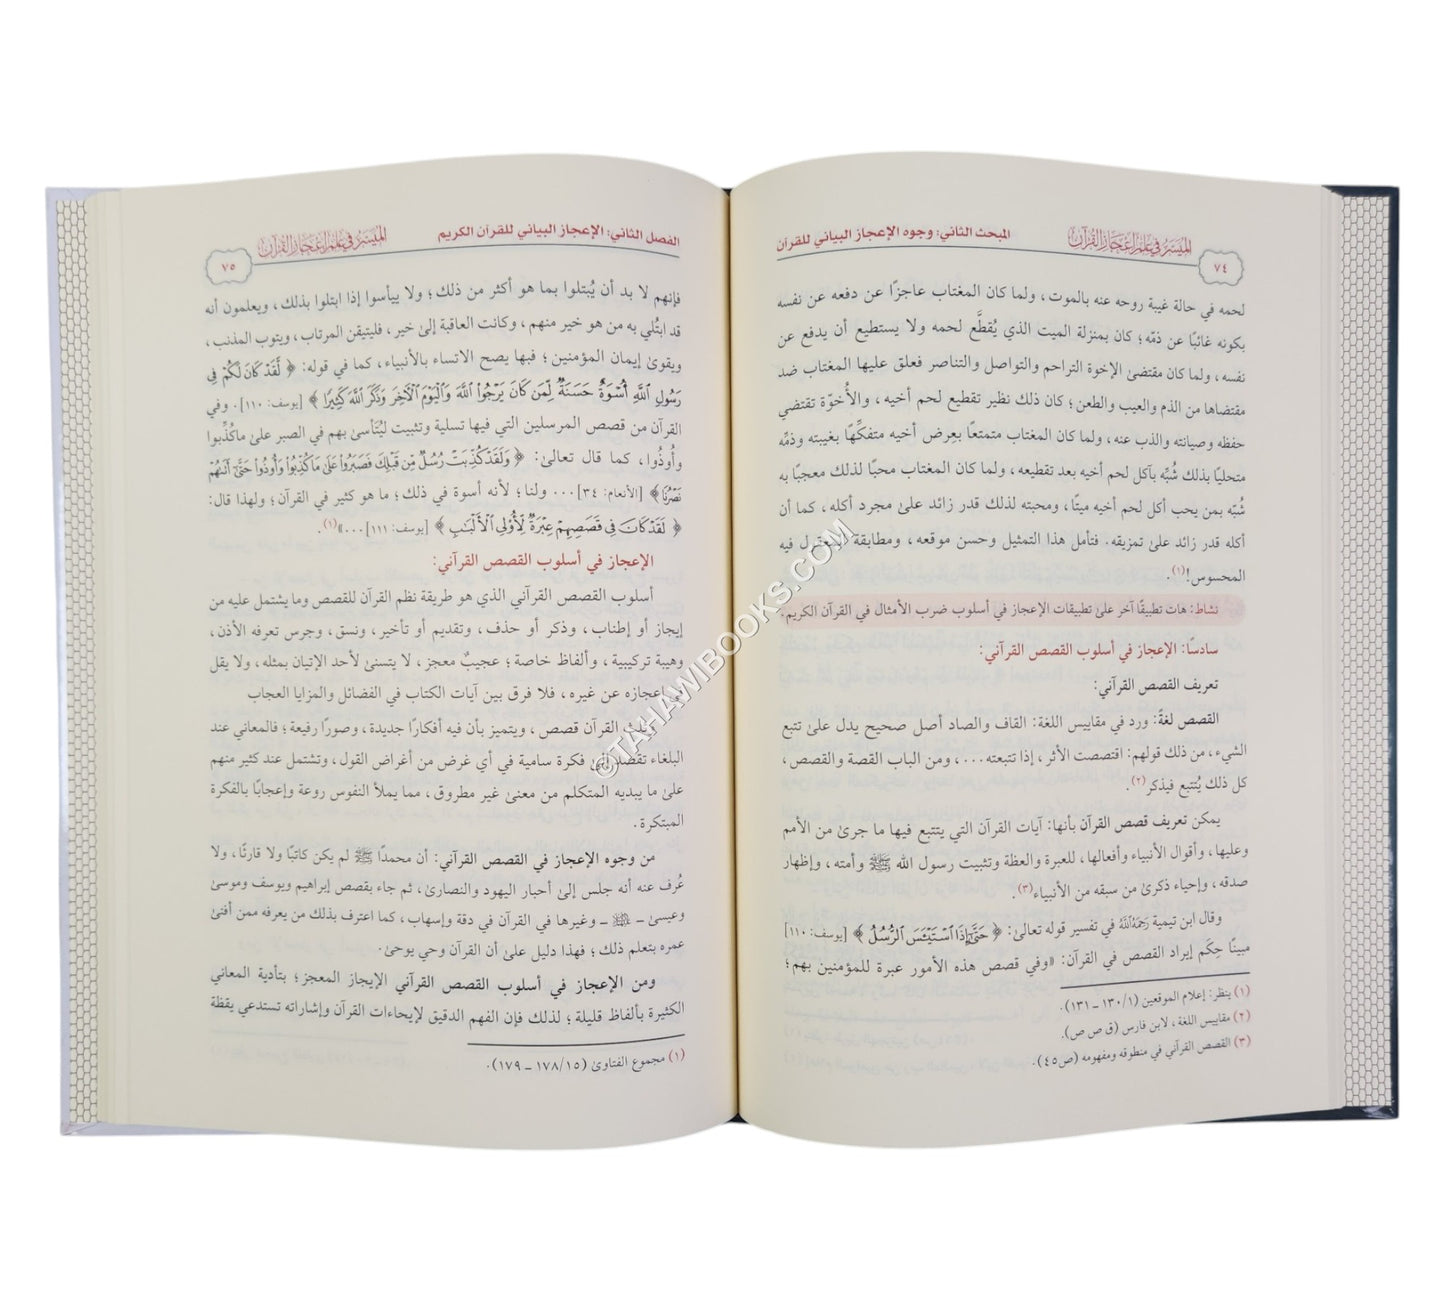 ٧٤
الميسر في علم إعجاز القرآن
المبحث الثاني: وجوه الإعجاز البياني للقرآن
لحمه في حالة غيبة روحه عنه بالموت، ولما كان المغتاب عاجزًا عن دفعه عن نفسه
بكونه غائبًا عن ذمّه؛ كان بمنزلة الميت الذي يُقطَّع لحمه ولا يستطيع أن يدفع عن
نفسه، ولما كان مقتضىٰ الإخوة التراحم والتواصل والتناصر فعلق عليها المغتاب ضد
مقتضاها من الذم والعيب والطعن؛ كان ذلك نظير تقطيع لحم أخيه، والأُخوّة تقتضي
حفظه وصيانته والذب عنه، ولما كان المغتاب متمتعًا بعِرض أخيه متفكّهًا بغيبته وذمّه
متحليًا بذلك شُبِّه بآكل لحم أخيه بعد تقطيعه، ولما كان المغتاب محبًا لذلك معجبًا به
شُبِّه بمن يحب أكل لحم أخيه ميتًا، ومحبته لذلك قدر زائد علىٰ مجرد أكله، كما أن
أكله قدر زائد علىٰ تمزيقه. فتأمل هذا التمثيل وحسن موقعه، ومطابقة المعقول فيه
المحسوس!(١).
نشاط: هات تطبيقًا آخر علىٰ تطبيقات الإعجاز في أسلوب ضرب الأمثال في القرآن الكريم.
سادسًا: الإعجاز في أسلوب القصص القرآني:
تعريف القصص القرآني:
القصص لغةً: ورد في مقاييس اللغة: القاف والصاد أصل صحيح يدل علىٰ تتبع
الشيء، من ذلك قولهم: اقتصصت الأثر، إذا تتبعته...، ومن الباب القصة والقصص،
كل ذلك يُتتبع فيذكر(٢).
يمكن تعريف قصص القرآن بأنها: آيات القرآن التي يتتبع فيها ما جرىٰ من الأمم
وعليها، وأقوال الأنبياء وأفعالها، للعبرة والعظة وتثبيت رسول الله ﷺ وأمته، وإظهار
صدقه، وإحياء ذكرىٰ من سبقه من الأنبياء(٣).
وقال ابن تيمية رَحِمَهُ اللَّهُ في تفسير قوله تعالىٰ: ﴿ حَتَّىٰٓ إِذَا ٱسْتَيْـَٔسَ ٱلرُّسُلُ ﴾ [يوسف: ١١٠]
مبينًا حِكَم إيراد القصص في القرآن: «وفي قصص هذه الأمور عبرة للمؤمنين بهم؛
(١) ينظر: إعلام الموقعين (١/ ١٣٠ ــ ١٣١).
(٢) مقاييس اللغة، لابن فارس (ق ص ص).
(٣) القصص القرآني في منطوقه ومفهومه (ص٤٥).
الفصل الثاني: الإعجاز البياني للقرآن الكريم
الميسر في علم إعجاز القرآن
٧٥
فإنهم لا بد أن يُبتلوا بما هو أكثر من ذلك؛ ولا ييأسوا إذا ابتلوا بذلك، ويعلمون أنه
قد ابتُلي به من هو خير منهم، وكانت العاقبة إلىٰ خير، فليتيقن المرتاب، ويتوب المذنب،
ويقوىٰ إيمان المؤمنين؛ فبها يصح الاتساء بالأنبياء، كما في قوله: ﴿ لَّقَدْ كَانَ لَكُمْ فِي
رَسُولِ ٱللَّهِ أُسْوَةٌ حَسَنَةٌ لِّمَن كَانَ يَرْجُوا۟ ٱللَّهَ وَٱلْيَوْمَ ٱلْـَٔاخِرَ وَذَكَرَ ٱللَّهَ كَثِيرًا ﴾ [يوسف: ١١٠]. وفي
القرآن من قصص المرسلين التي فيها تسلية وتثبيت ليُتَأسىٰ بهم في الصبر علىٰ ما كُذِّبوا
وأُوذُوا، كما قال تعالىٰ: ﴿ وَلَقَدْ كُذِّبَتْ رُسُلٌ مِّن قَبْلِكَ فَصَبَرُوا۟ عَلَىٰ مَا كُذِّبُوا۟ وَأُوذُوا۟ حَتَّىٰٓ أَتَىٰهُمْ
نَصْرُنَا ﴾ [الأنعام: ٣٤]... ولنا؛ لأنه أسوة في ذلك؛ ما هو كثير في القرآن؛ ولهذا قال:
﴿ لَقَدْ كَانَ فِي قَصَصِهِمْ عِبْرَةٌ لِّأُو۟لِي ٱلْأَلْبَٰبِ ﴾ [يوسف: ١١١]...»(١).
الإعجاز في أسلوب القصص القرآني:
أسلوب القصص القرآني الذي هو طريقة نظم القرآن للقصص وما يشتمل عليه من
إيجاز أو إطناب، وذكر أو حذف، وتقديم أو تأخير، ونسق، وجرس تعرفه الأذن،
وهيبة تركيبية، وألفاظ خاصة؛ عجيبٌ معجز، لا يتسنىٰ لأحد الإتيان بمثله، ولا يقل
في إعجازه عن غيره، فلا فرق بين آيات الكتاب في الفضائل والمزايا العجاب
وثلث القرآن قصص، ويتميز بأن فيه أفكارًا جديدة، وصورًا رفيعة؛ فالمعاني عند
البلغاء تقصد إلىٰ فكرة سامية في أي غرض من أغراض القول، وتشتمل عند كثير منهم
علىٰ ما يبديه المتكلم من معنىٰ غير مطروق، مما يملأ النفوس روعة وإعجابًا بالفكرة
المبتكرة.
من وجوه الإعجاز في القصص القرآني: أن محمدًا ﷺ لم يكن كاتبًا ولا قارئًا، ولا
عُرف عنه أنه جلس إلىٰ أحبار اليهود والنصارىٰ، ثم جاء بقصص إبراهيم ويوسف وموسىٰ
وعيسىٰ ــ ﷺ ــ وغيرها في القرآن في دقة وإسهاب، كما اعترف بذلك من يعرفه ممن أفنىٰ
عمره بتعلم ذلك؛ فهذا دليل علىٰ أن القرآن وحي يوحىٰ.
ومن الإعجاز في أسلوب القصص القرآني الإيجاز المعجز؛ بتأدية المعاني
الكثيرة بألفاظ قليلة؛ لذلك فإن الفهم الدقيق لإيحاءات القرآن وإشاراته تستدعي يقظة
(١) مجموع الفتاوىٰ (١٥/ ١٧٨ ــ ١٧٩).
©TAHAWIBOOKS.COM